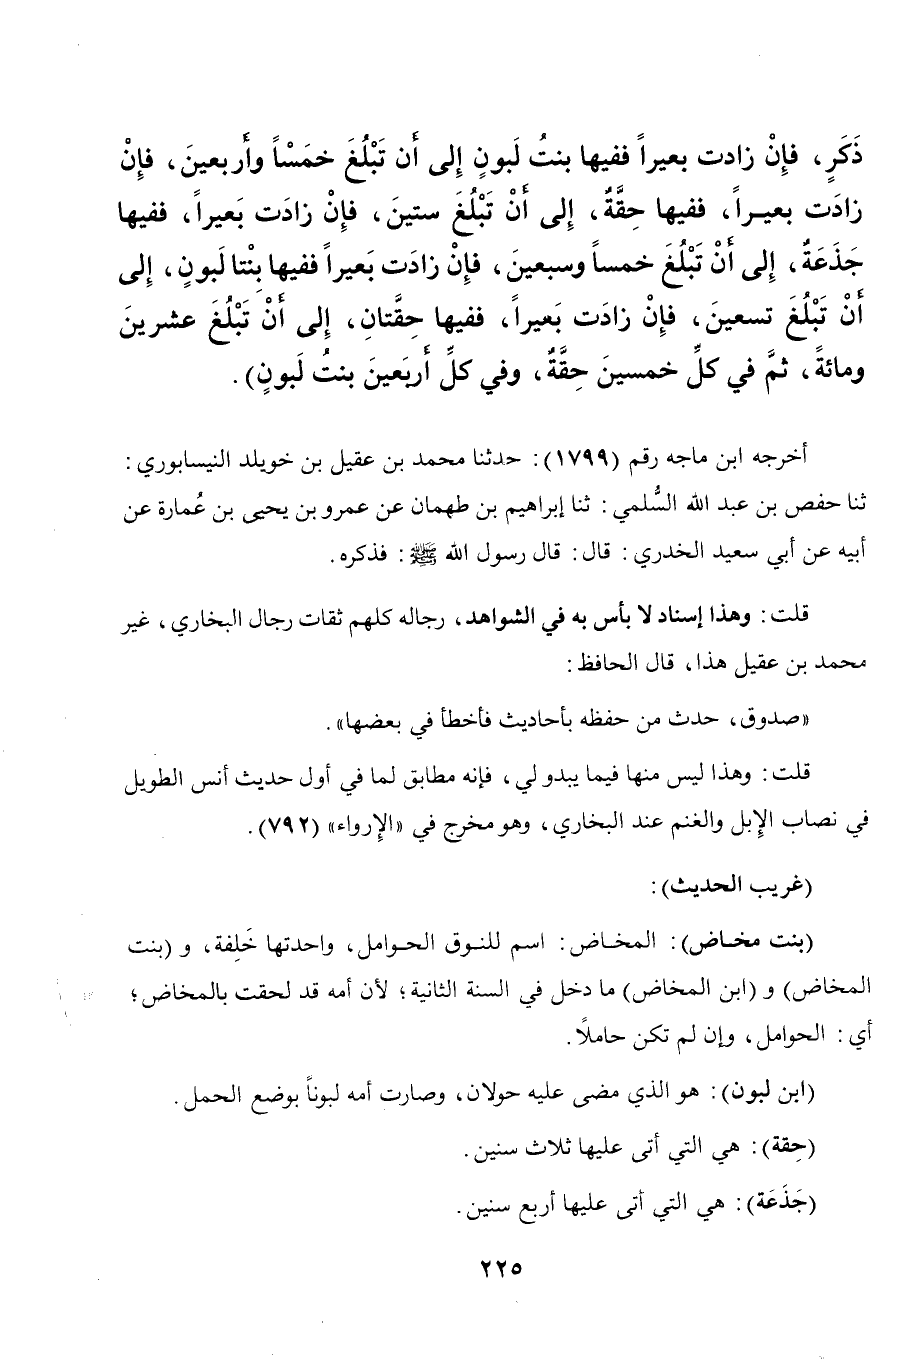 ذَكَرٍ، فإِنْ زادت بعيراً ففيها بنتُ لَبونٍ إلى أَن تَبْلُغَ خمَسْاً وأَربعينَ، فإِنْ
زادَت بعيـراً، ففيها حِقَّةٌ، إلى أَنْ تَبْلُغَ ستينَ، فإِنْ زادَت بَعيراً، ففيها
جَذَعَةٌ، إلى أَنْ تَبْلُغَ خمساً وسبعينَ، فإِنْ زادَت بَعيراً ففيها بِنْتا لَبونٍ، إلى
أَنْ تَبْلُغَ تسعينَ، فإِنْ زادَت بَعيراً، ففيها حِقَّتانِ، إلى أَنْ تَبْلُغَ عشرينَ
ومائةً، ثمَّ في كلِّ خمسينَ حِقَّةٌ، وفي كلِّ أَربَعينَ بنتُ لَبونٍ).
أخرجه ابن ماجه رقم (١٧٩٩): حدثنا محمد بن عقيل بن خويلد النيسابوري:
ثنا حفص بن عبد الله السُّلمي: ثنا إبراهيم بن طهمان عن عمرو بن يحيى بن عُمارة عن
أبيه عن أبي سعيد الخدري: قال: قال رسول الله ﷺ: فذكره.
قلت: وهذا إسناد لا بأس به في الشواهد، رجاله كلهم ثقات رجال البخاري، غير
محمد بن عقيل هذا، قال الحافظ:
«صدوق، حدث من حفظه بأحاديث فأخطأ في بعضها».
قلت: وهذا ليس منها فيما يبدو لي، فإنه مطابق لما في أول حديث أنس الطويل
في نصاب الإبل والغنم عند البخاري، وهو مخرج في «الإرواء» (٧٩٢).
(غريب الحديث):
(بنت مخـاض): المخـاض: اسم للنـوق الحـوامل، واحدتها خَلِفة، و (بنت
المخاض) و (ابن المخاض) ما دخل في السنة الثانية؛ لأن أمه قد لحقت بالمخاض؛
أي: الحوامل، وإن لم تكن حاملاً.
(ابن لبون): هو الذي مضى عليه حولان، وصارت أمه لبوناً بوضع الحمل.
(حِقة): هي التي أتى عليها ثلاث سنين.
(جَذَعَة): هي التي أتى عليها أربع سنين.
٢٢٥